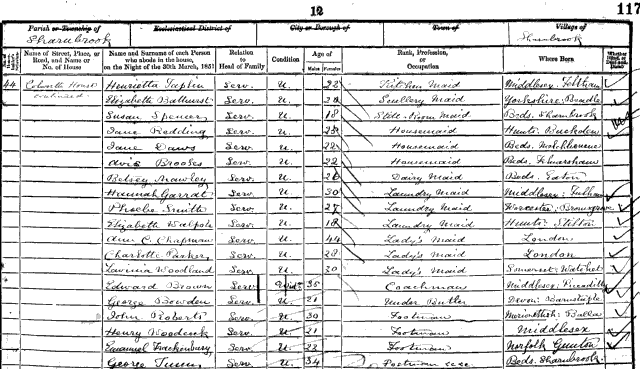 12
117
Parish or Township of Ecclesiastical District of City or Borough of Town of Village of
Sharnbrook Sharnbrook
Name of Street, Place, or Road, and Name or No. of House Name and Surname of each Person who abode in the house, on the Night of the 30th March, 1851 Relation to Head of Family Condition Age of Males Females Rank, Profession, or Occupation Where Born
44 House Henrietta Serv. U. 22 Kitchen Maid Middlesex
continued Elizabeth Bathurst Serv. U. Scullery Maid Yorkshire
Susan Spencer Serv. U. 18 Still-Room Maid Beds. Sharnbrook
Jane Redding Serv. U. Housemaid Hunts. Buckden
Jane Daws Serv. U. 22 Housemaid Beds.
Avis Brookes Serv. U. 22 Housemaid Beds.
Betsey Serv. U. 26 Dairy Maid Beds. Eaton
Hannah Garratt Serv. U. 30 Laundry Maid Middlesex Fulham
Phoebe Smith Serv. U. 27 Laundry Maid Worcester Bromsgrove
Elizabeth Walpole Serv. U. 18 Laundry Maid Hunts. Stilton
Ann C. Chapman Serv. U. 44 Lady's Maid London
Charlotte Parker Serv. U. 28 Lady's Maid London
Lavinia Woodland Serv. U. 30 Lady's Maid Somerset Watchet
Edward Brown Serv. Widr. 35 Coachman Middlesex Piccadilly
George Bowden Serv. U. 21 Under Butler Devon Barnstaple
John Roberts Serv. U. 30 Footman Merioneth Balla
Henry Woodcock Serv. U. 21 Footman Middlesex
Emanuel Serv. U. 23 Footman Norfolk Gunton
George Serv. U. 34 Beds. Sharnbrook